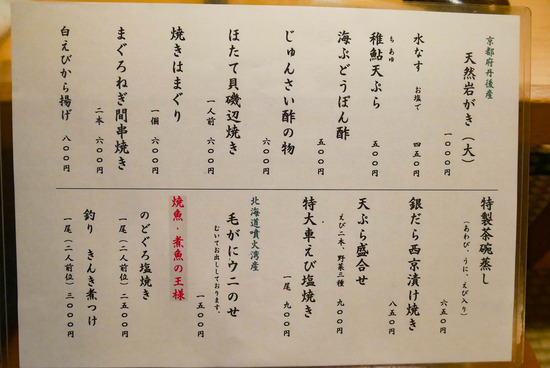 京都府丹後産
天然岩がき（大）
一〇〇〇円
水なす お塩で
四五〇円
ちあゆ
稚鮎天ぷら
五〇〇円
海ぶどうぽん酢
五〇〇円
じゅんさい酢の物
六〇〇円
ほたて貝磯辺焼き
一人前 六〇〇円
焼きはまぐり
一個 六〇〇円
まぐろねぎ間串焼き
二本 六〇〇円
白えびから揚げ
八〇〇円
特製茶碗蒸し
（あわび・うに、えび入り）
六五〇円
銀だら西京漬け焼き
八五〇円
天ぷら盛合せ
えび二本、野菜三種 九〇〇円
特大車えび塩焼き
一尾 九〇〇円
北海道噴火湾産
毛がにウニのせ
むいてお出ししております。
一五〇〇円
焼魚・煮魚の王様
のどぐろ塩焼き
一尾（二人前位）二五〇〇円
釣り きんき煮つけ
一尾（二人前位）三〇〇〇円